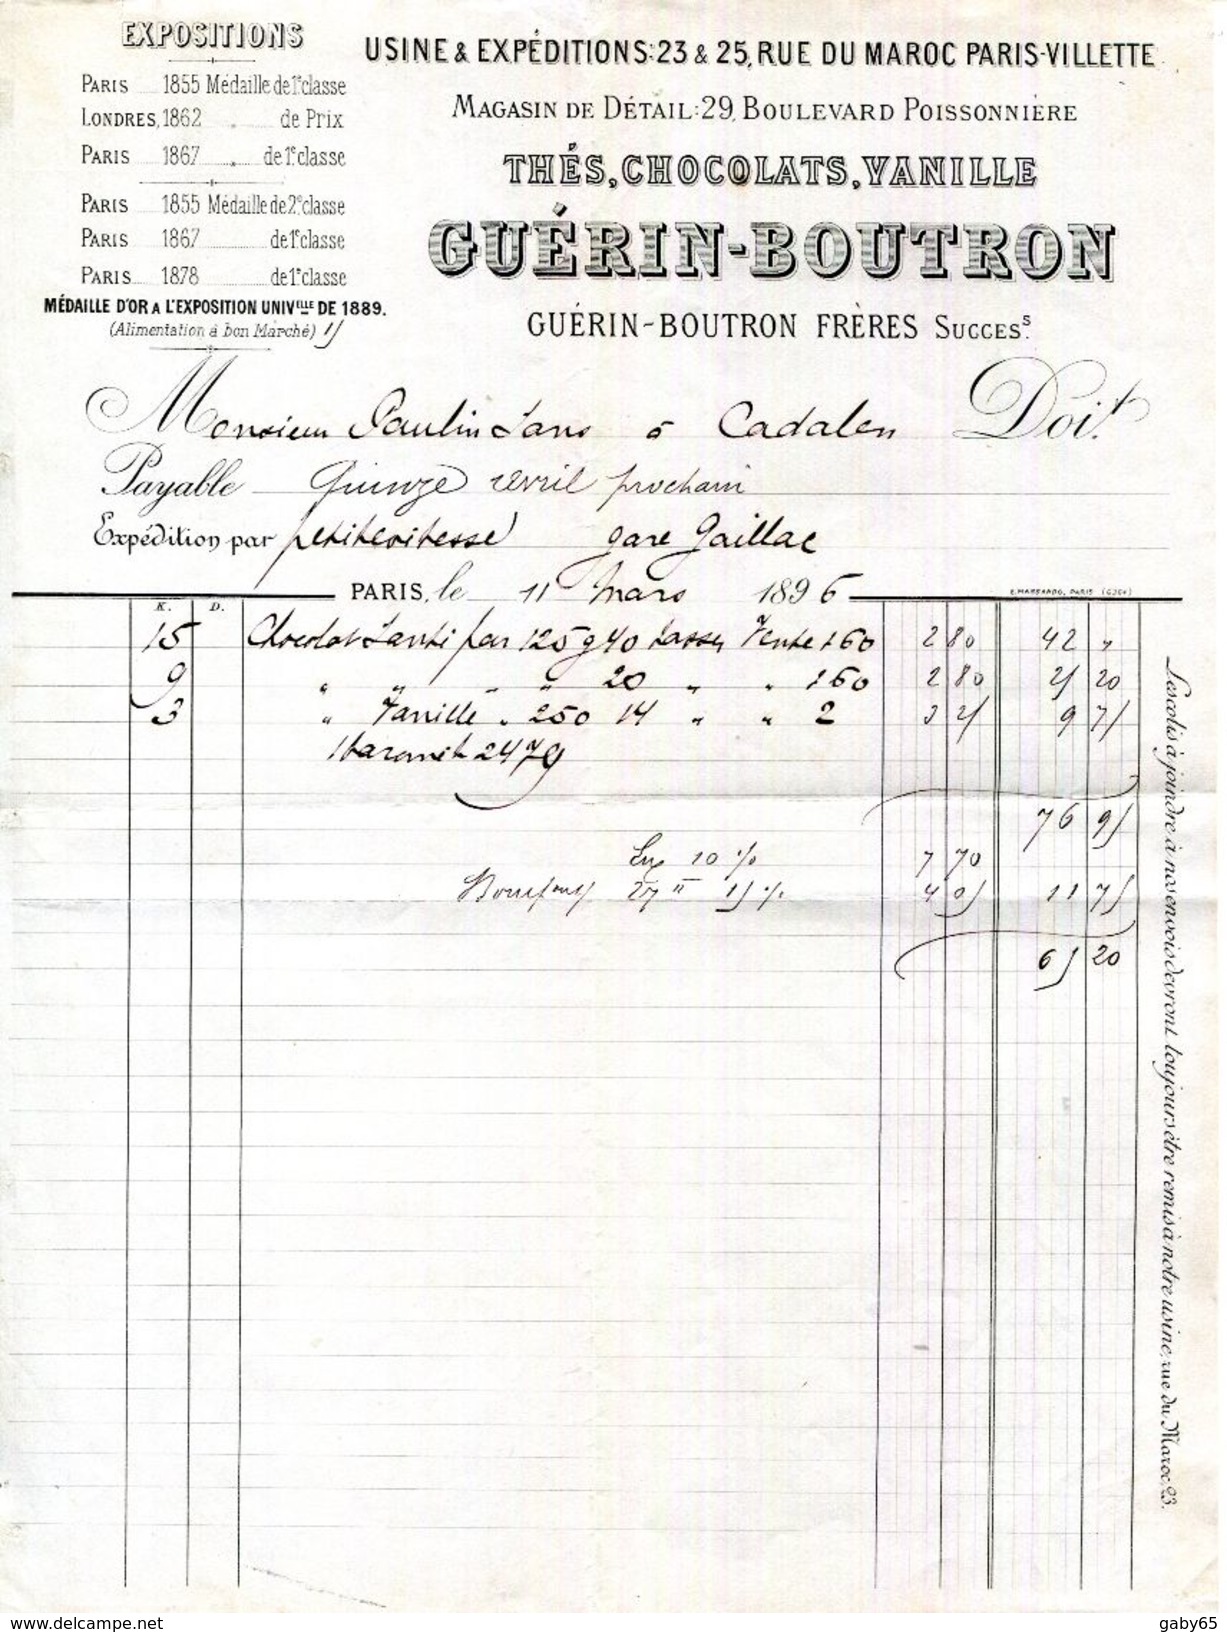 EXPOSITIONS
PARIS 1855 Médaille de 1re classe
LONDRES, 1862 " de Prix
PARIS 1867 " de 1re classe
PARIS 1855 Médaille de 2e classe
PARIS 1867 de 1re classe
PARIS 1878 de 1re classe
MÉDAILLE D'OR A L'EXPOSITION UNIVELLE DE 1889.
(Alimentation à bon Marché)
USINE & EXPÉDITIONS: 23 & 25, RUE DU MAROC PARIS-VILLETTE
MAGASIN DE DÉTAIL: 29, BOULEVARD POISSONNIÈRE
THÉS, CHOCOLATS, VANILLE
GUÉRIN-BOUTRON
GUÉRIN-BOUTRON FRÈRES SUCCESS.
Monsieur Paulin Sans à Cadalen Doit.
Payable Quinze avril prochain
Expédition par petite vitesse gare Gaillac
PARIS, le 11 Mars 1896
E. MARSHADO, PARIS
K. D.
15 Chocolat Santé par 125 g 40 tasses Vente 160 2 80 42 "
9 " " " " 20 " " 160 2 80 25 20
3 " Vanille " 250 14 " " 2 3 25 9 75
2479
76 95
10 % 7 70
27 " 15 % 4 05 11 75
65 20
Les colis à joindre à nos envois devront toujours être remis à notre usine, rue du Maroc, 23.
gaby65